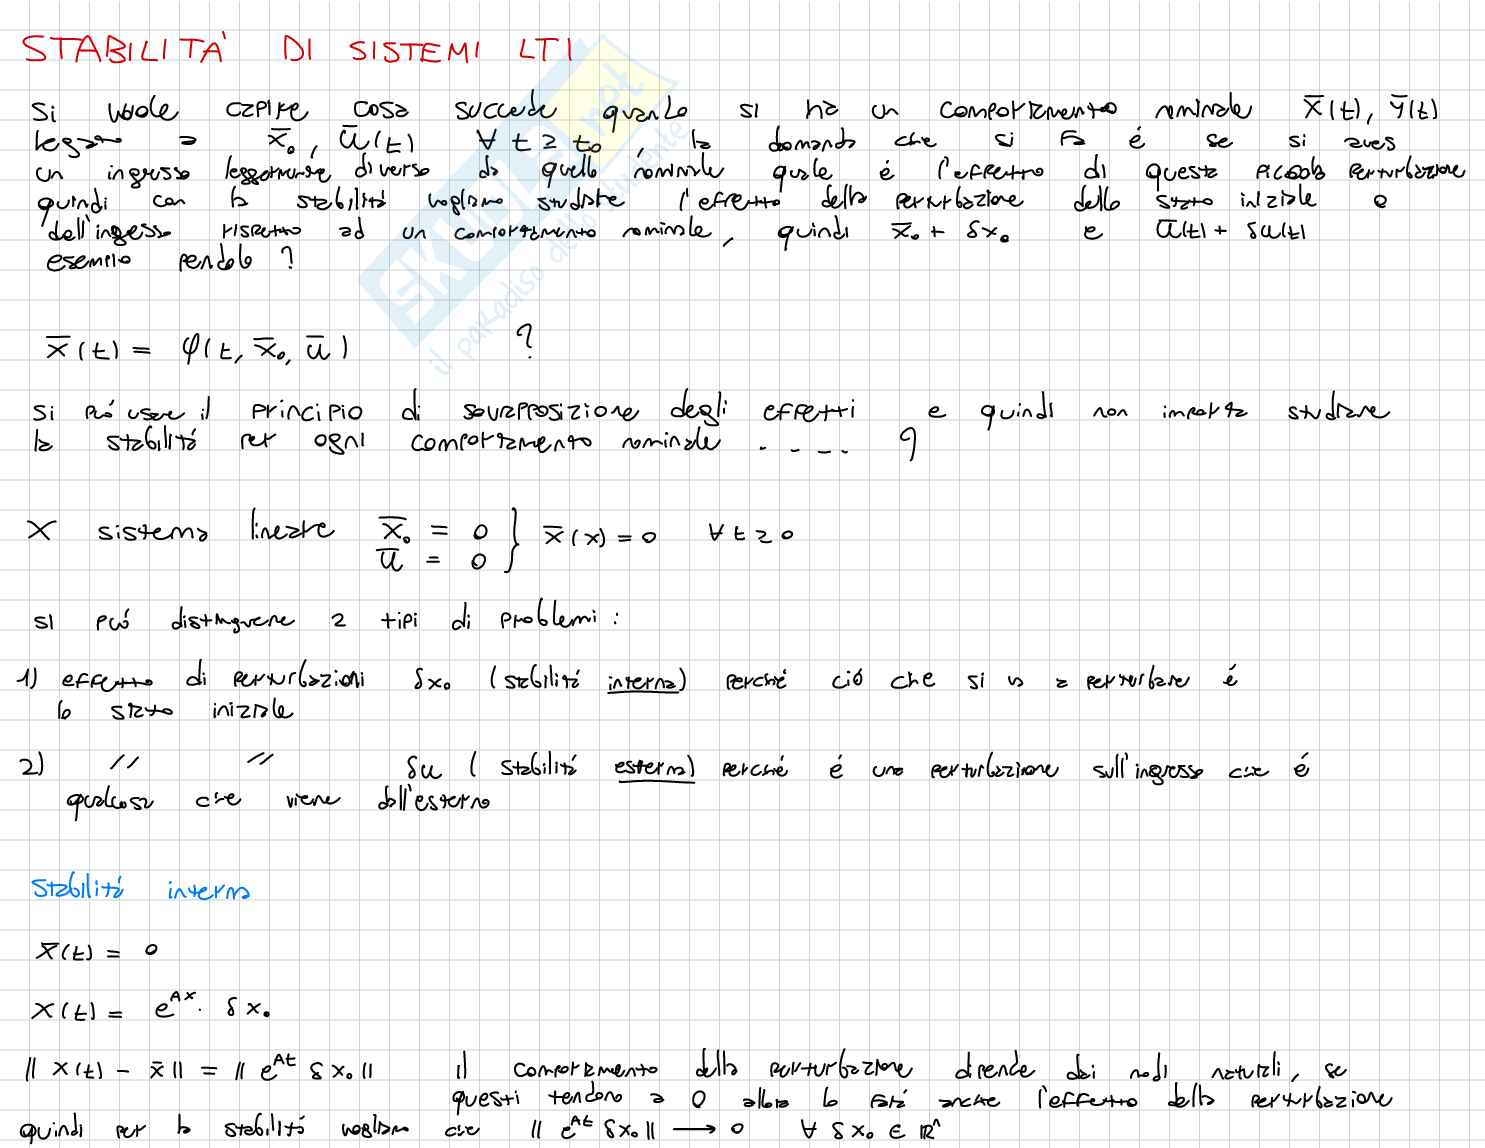 STABILITÀ DI SISTEMI LTI
Si vuole capire cosa succede quando si ha un comportamento nominale x̄(t), ȳ(t)
legato a x̄₀, ū(t) ∀ t ≥ t₀, la domanda che si fa é se si aves
un ingresso leggermente diverso da quello nominale quale é l'effetto di questa piccola perturbazione
quindi con la stabilitá vogliamo studiare l'effetto della perturbazione dello stato iniziale e
dell'ingresso rispetto ad un comportamento nominale, quindi x̄₀ + δx₀ e ū(t) + δu(t)
esempio pendolo ?
x̄(t) = φ(t, x̄₀, ū) ?
si puó usare il principio di sovrapposizione degli effetti e quindi non importa studiare
la stabilitá per ogni comportamento nominale ..... ?
X sistema lineare x̄₀ = 0 } x̄(x) = 0 ∀ t ≥ 0
ū = 0
si puó distinguere 2 tipi di problemi :
1) effetto di perturbazioni δx₀ (stabilitá interna) perché ció che si va a perturbare é
lo stato iniziale
2) // // δu (stabilitá esterna) perché é una perturbazione sull'ingresso che é
qualcosa che viene dall'esterno
Stabilitá interna
x̄(t) = 0
x(t) = e^Ax · δx₀
|| x(t) - x̄ || = || e^At δx₀ || il comportamento della perturbazione dipende dai modi naturali, se
questi tendono a 0 allora lo fará anche l'effetto della perturbazione
quindi per la stabilitá vogliamo che || e^At δx₀ || → 0 ∀ δx₀ ∈ ℝⁿ
SKUOLA.not
il paradiso dello studente